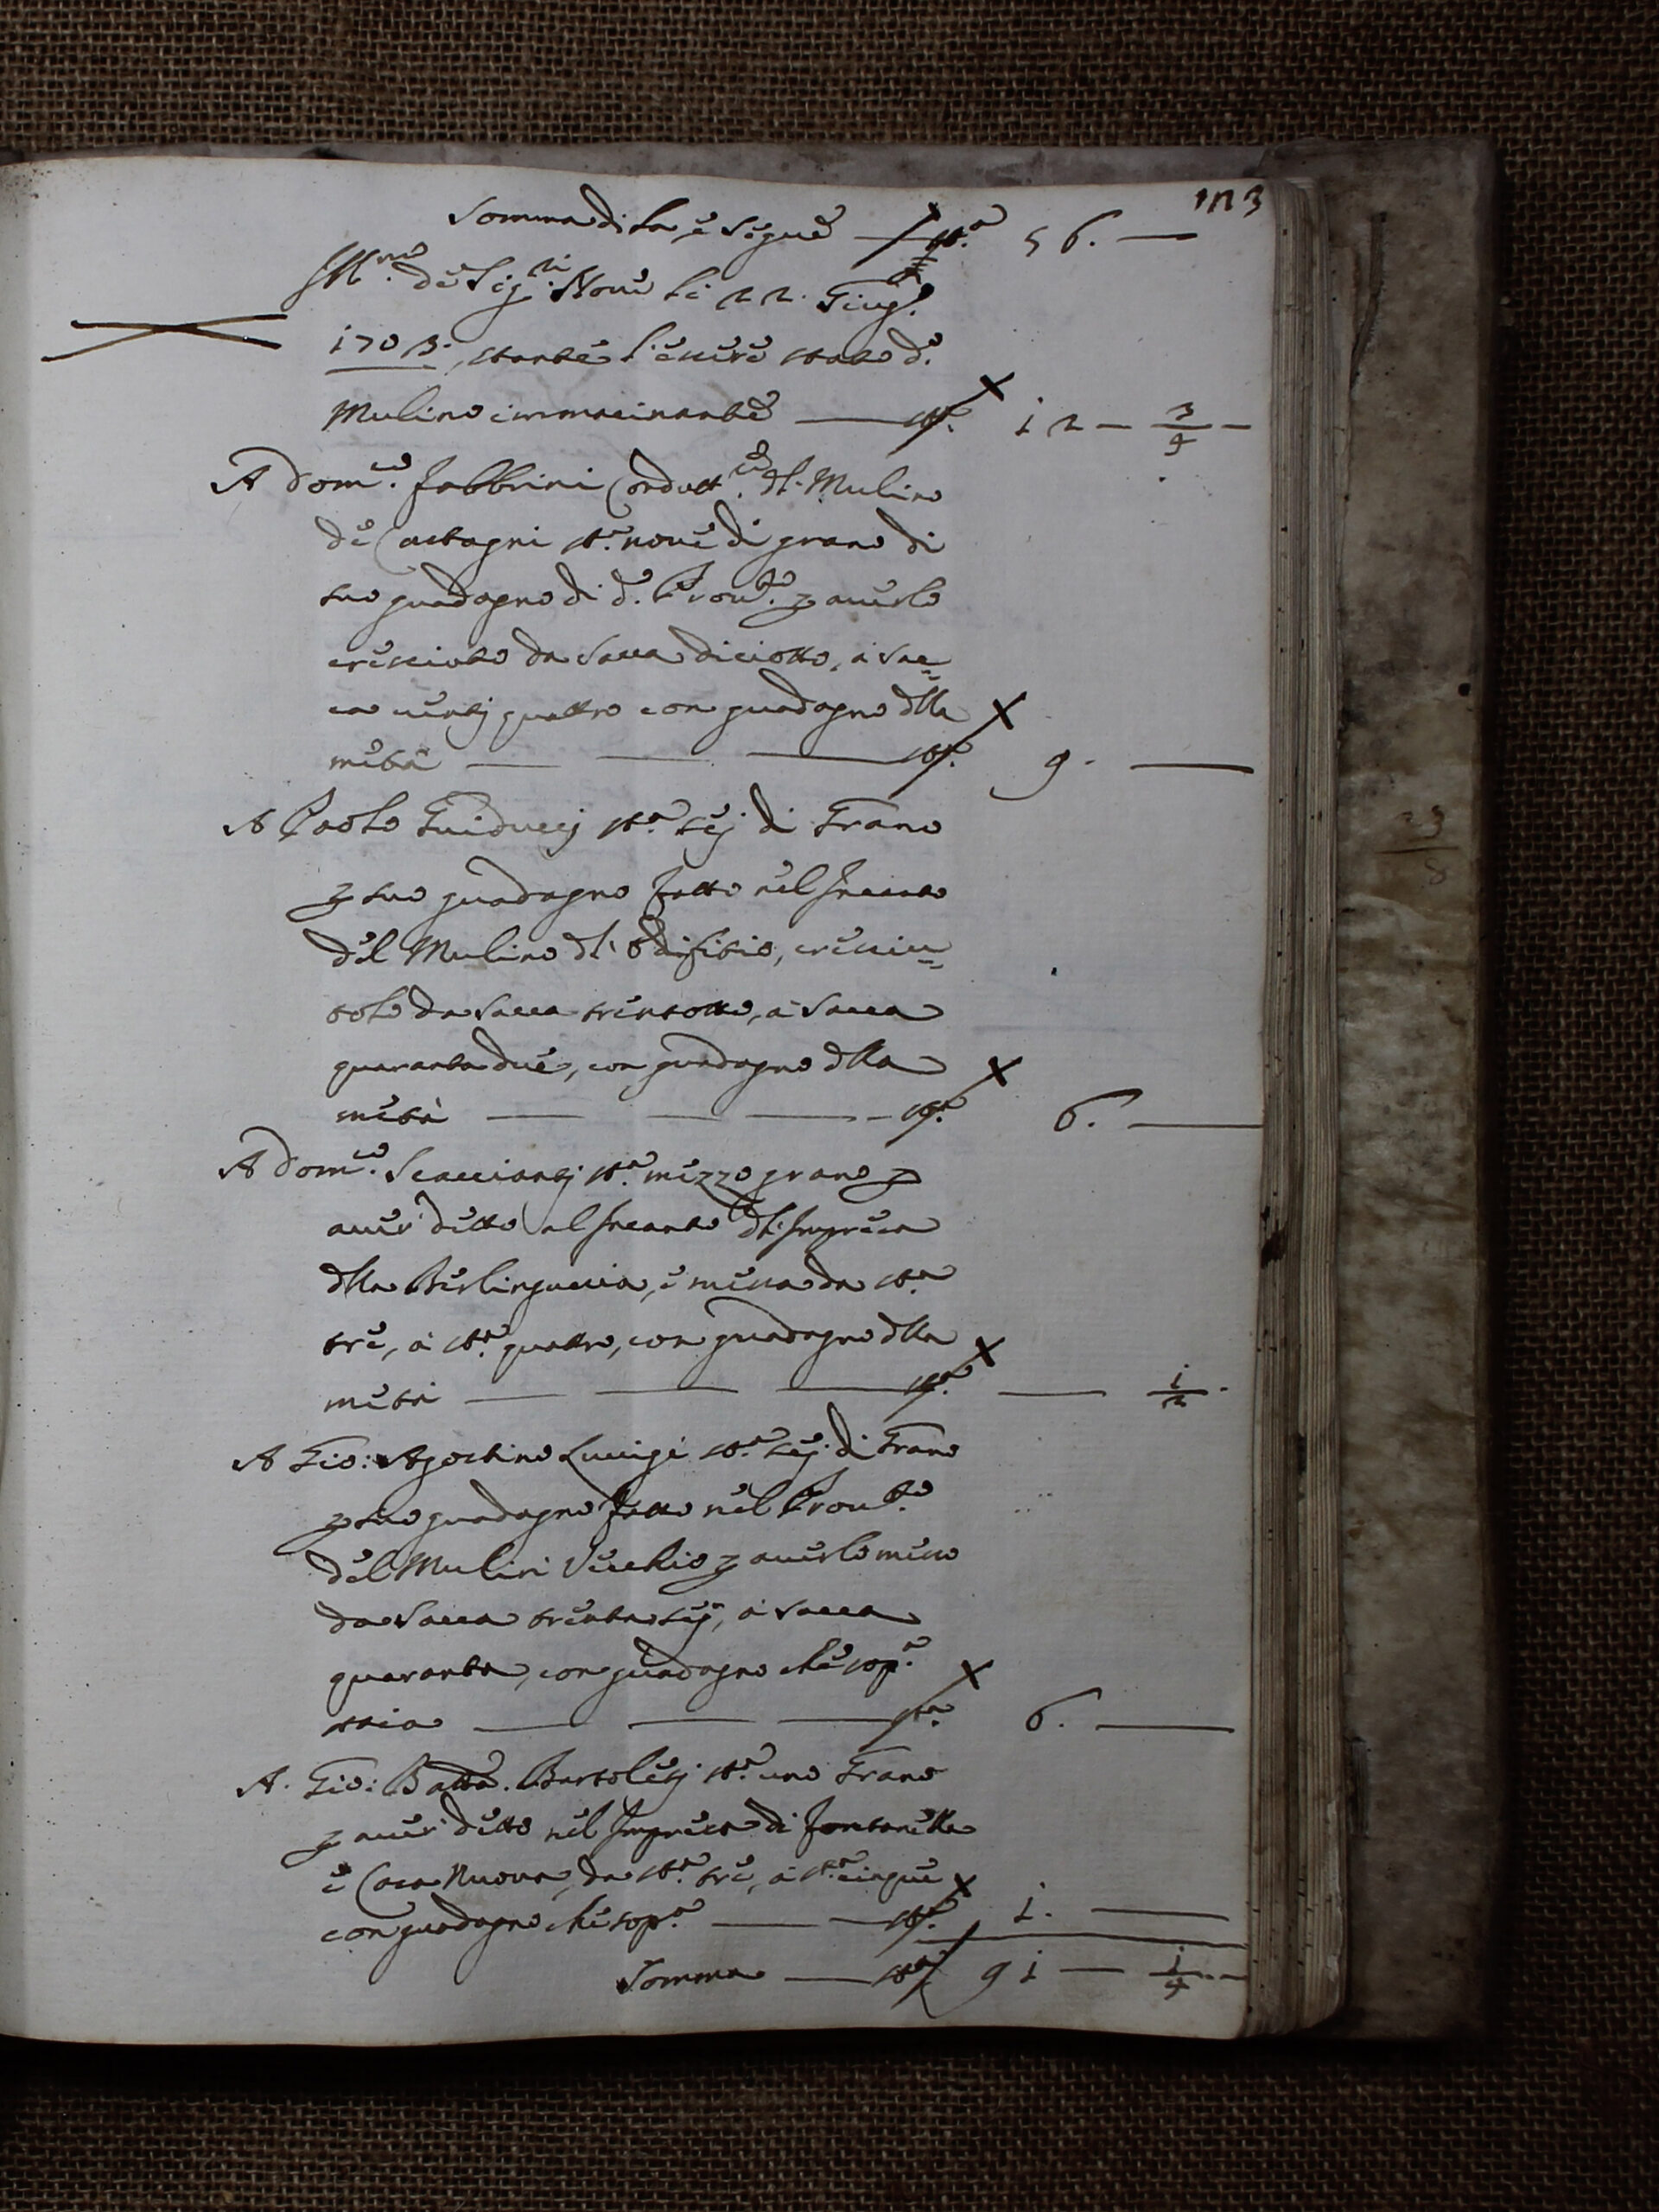 123
Somma di là, e segue — st.a 56. —
Ill.mi de Sig.ri Nove li 22. Giug.o
1703. stante l'essere stato d.o
Mulino immacinante — st.a 12 — 3/4 —
A Dom.co Fabbrini Condutt.re dl. Mulino
de Castagni st.a nove di grano di
suo guadagno di d.o Prov.to p averlo
cresciuto da sacca diciotto, à sac=
ca ventj quattro con guadagno dlla
metà — st.a 9. —
A Paolo Guiduccj st.a sej di Grano
p suo guadagno fatto nel Incanto
del Mulino dl. Edifitio, cresciu=
tolo da sacca trentotto, à sacca
quaranta due, con guadagno dlla
metà — st.a 6. —
A Dom.co Scacciantj st.a mezzo grano p
aver detto al Incanto dl. Impresa
dlla Berlinguccia, e messa da st.a
tre, à st.a quattro, con guadagno dlla
metà — st.a — 1/2.
A Gio: Agostino Luccigi st.a sej di Grano
p suo guadagno fatto nel Prov.to
del Mulin Vecchio p averlo messo
da sacca trenta sej, à sacca
quaranta, con guadagno che sop.a
staia — st.a 6. —
A. Gio: Batta. Bartolesj st.a uno Grano
p aver detto nel Impresa di Fontanella
e Casa Nuova, da st.a tre, à st.a cinque
con guadagno che sop.a — st.a 1. —
Somma — st.a 91 — 1/4 —